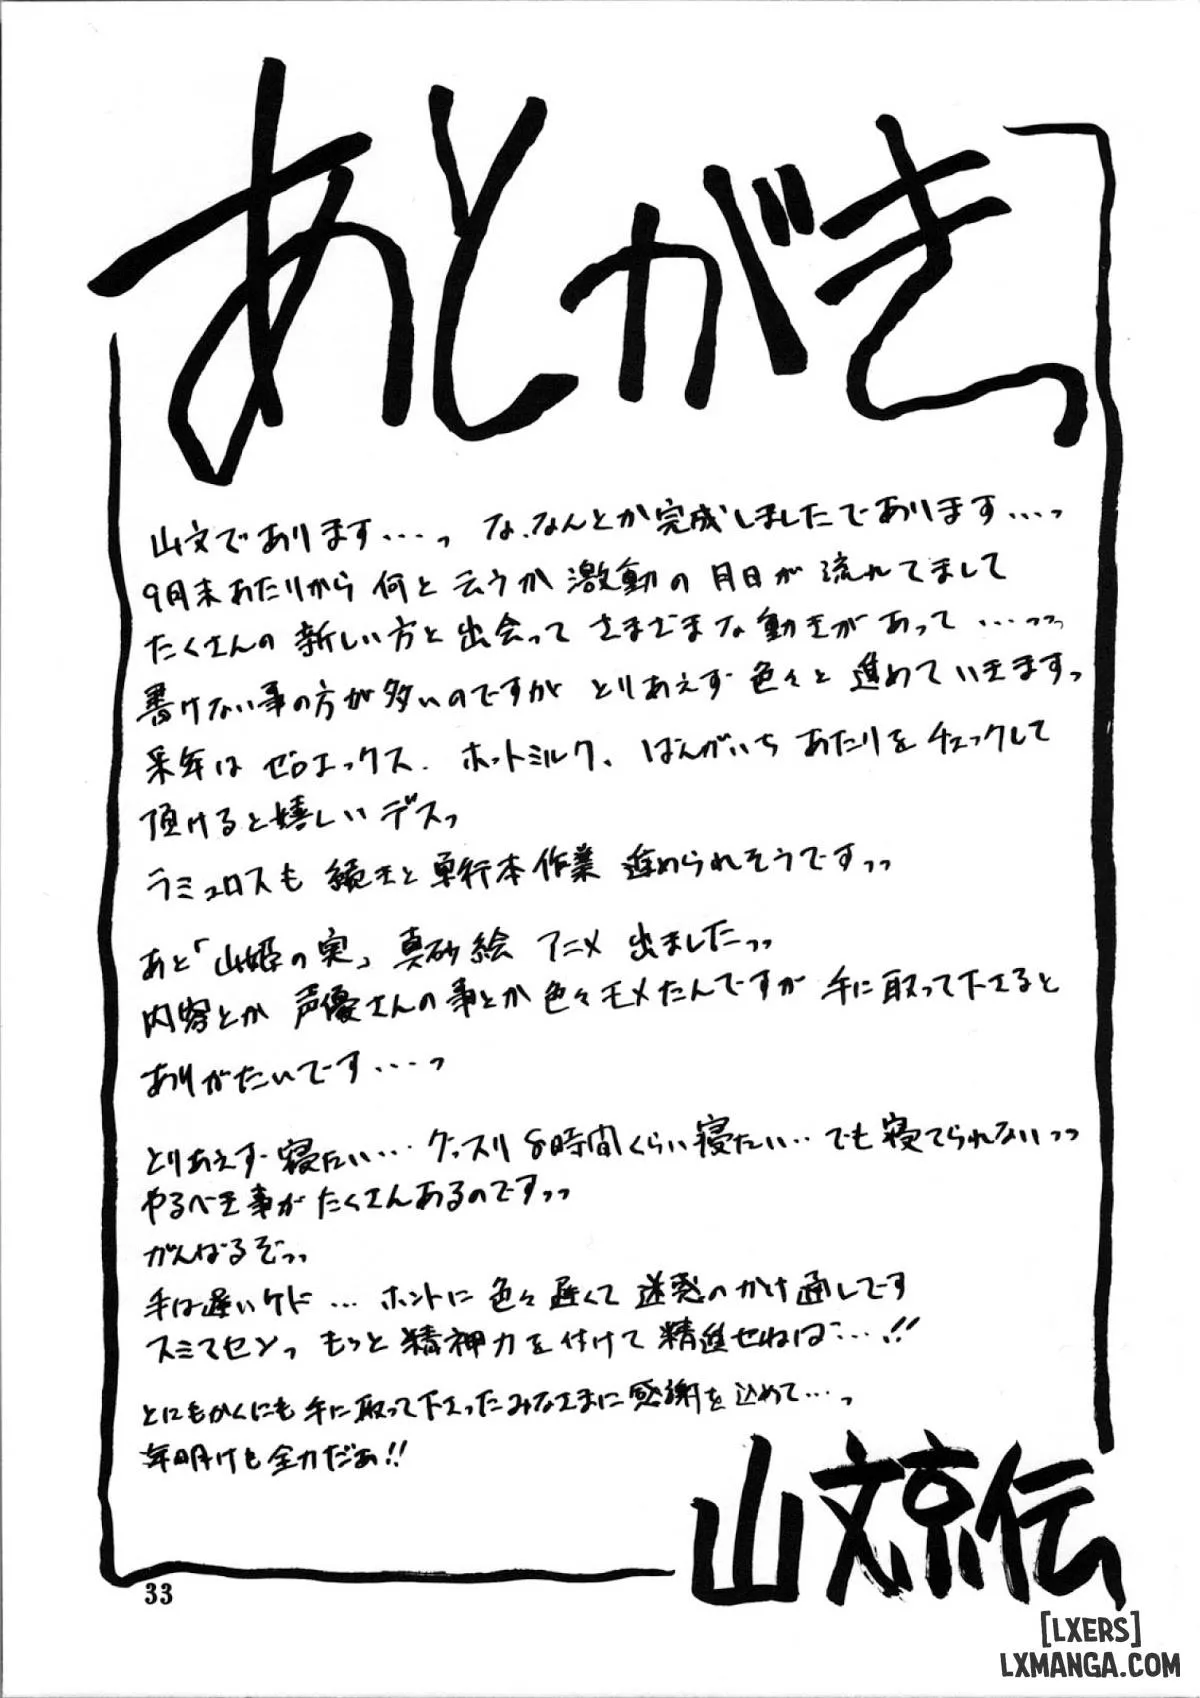 あとがきっ
山文であります…っ な、なんとか完成しましたであります…っ
9月末あたりから 何と云うか 激動の 月日が 流れてまして
たくさんの 新しい方と 出会って さまざまな動きがあって …っっ
書けない事の方が多いのですが とりあえず 色々と 進めていきますっ
来年は ゼロエックス、ホットミルク、ばんがいち あたりを チェックして
頂けると嬉しいデスっ
ラミュロスも 続きと 単行本作業 進められそうですっっ
あと「山姫の実」真砂絵 アニメ 出ましたっっ
内容とか 声優さんの事とか 色々モメたんですが 手に取って下さると
ありがたいです…っ
とりあえず 寝たい… グッスリ 8時間くらい寝たい… でも 寝てられないっっ
やるべき事が たくさんあるのですっっ
がんばるぞっっ
手は遅いケド … ホントに 色々 遅くて 迷惑のかけ通しです
スミマセンっ もっと 精神力を付けて 精進せねば…!!
とにもかくにも手に取って下さったみなさまに感謝を込めて…っ
年明けも全力だぁ!!
山文京伝
33
[LXERS]
LXMANGA.COM